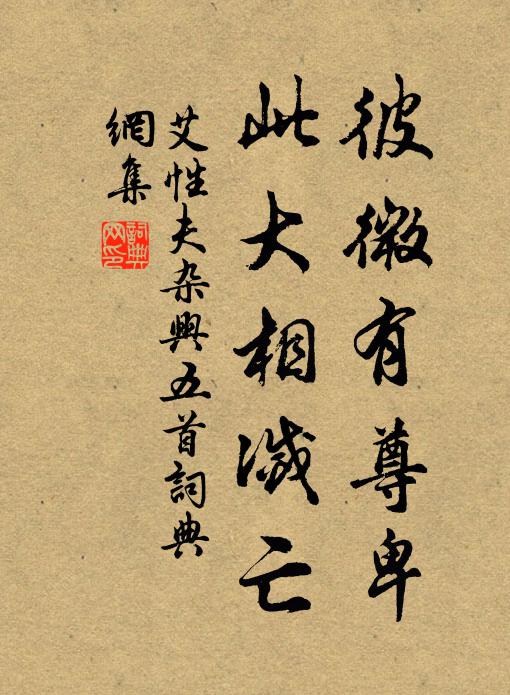 彼微有尊卑
此大相滅亡
艾性夫杂興五首詞典
網集
詞典网印